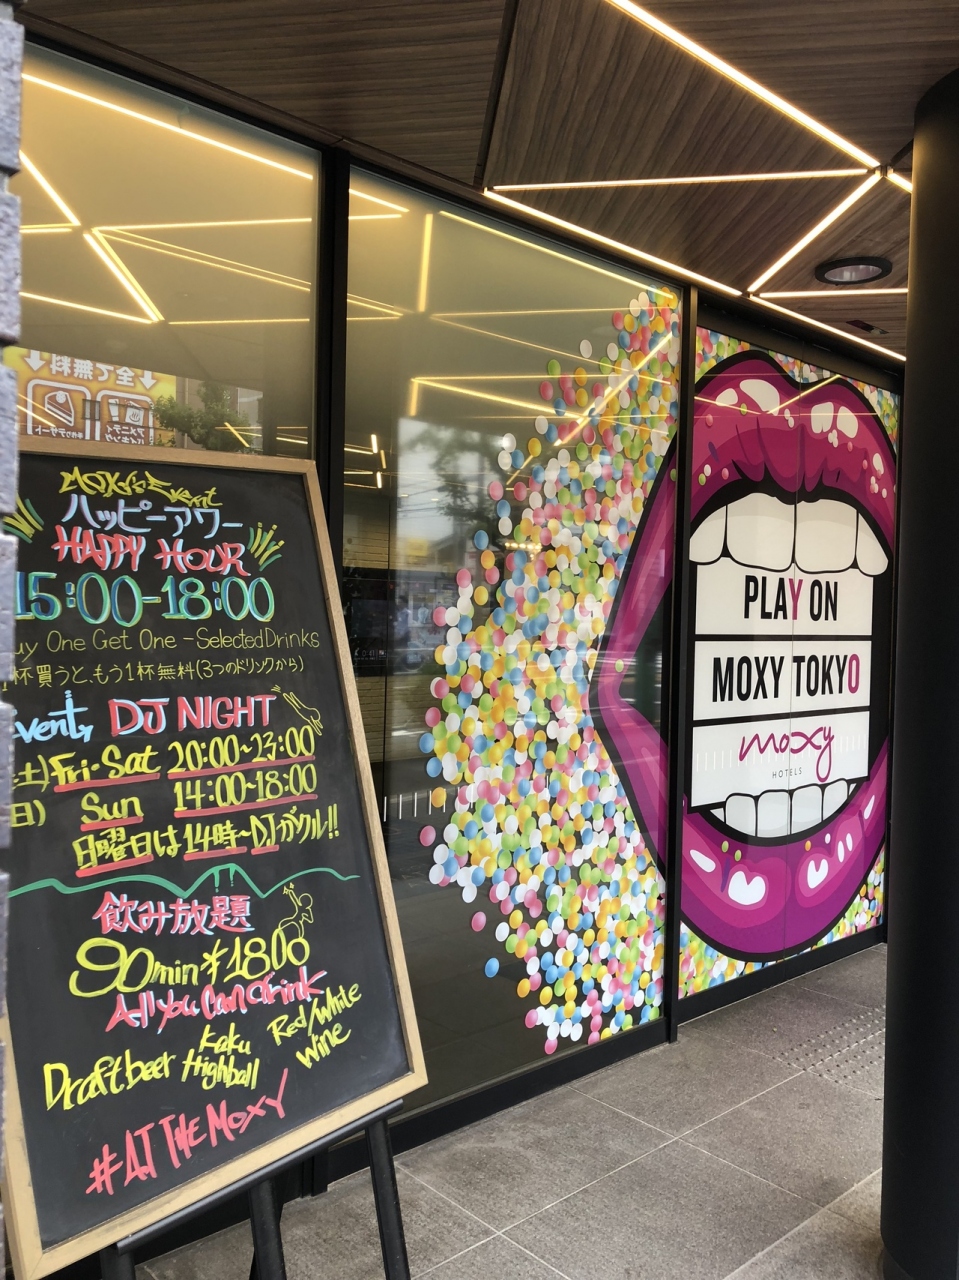 Moxy's Event
ハッピーアワー
HAPPY HOUR
15:00-18:00
uy One Get One - Selected Drinks
1杯買うと、もう1杯無料(3つのドリンクから)
vent,
DJ NIGHT
土) Fri・Sat 20:00~23:00
日) Sun 14:00~18:00
日曜日は14時~DJがクル!!
飲み放題
90min ¥1800
All you can drink
Draft beer
Kaku Highball
Red/white wine
#AT THE MOXY
全て無料
PLAY ON
MOXY TOKYO
moxy
HOTELS